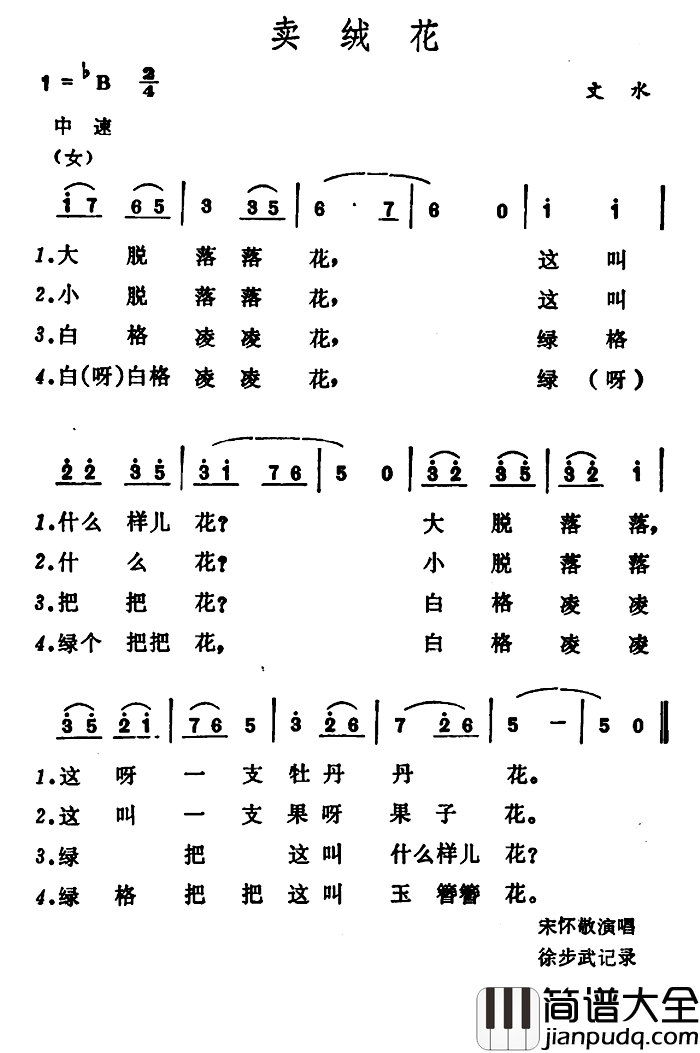 卖绒花
1=♭B 2/4
文水
中速
(女)
i7 65 | 3 35 | 6 · 7 | 6 0 | i i |
1.大脱落落花，这叫
2.小脱落落花，这叫
3.白格凌凌花，绿格
4.白(呀)白格凌凌花，绿(呀)
2̇2̇ 3̇5̇ | 3̇i 76 | 5 0 | 3̇2̇ 3̇5̇ | 3̇2̇ i |
1.什么样儿花？大脱落落，
2.什么花？小脱落落
3.把把花？白格凌凌
4.绿个把把花，白格凌凌
3̇5̇ 2̇i | 76 5 | 3̇ 2̇6 | 7 2̇6 | 5 — | 5 0 ‖
1.这呀一支牡丹丹花。
2.这叫一支果呀果子花。
3.绿把这叫什么样儿花？
4.绿格把把这叫玉簪簪花。
宋怀敬演唱
徐步武记录
简谱大全
jianpudq.com